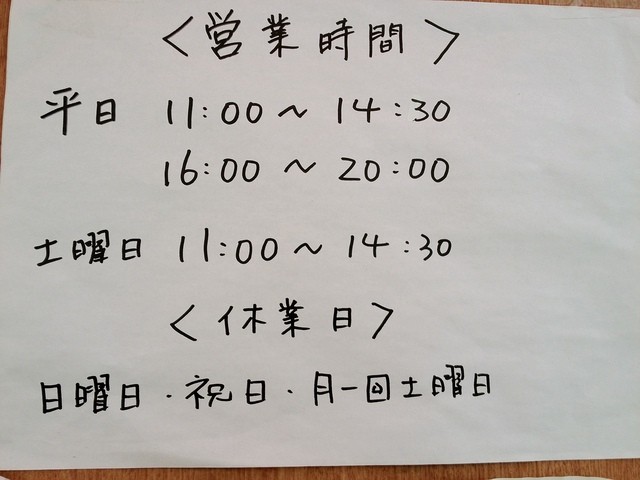 〈営業時間〉
平日 11:00～14:30
16:00～20:00
土曜日 11:00～14:30
〈休業日〉
日曜日・祝日・月一回土曜日